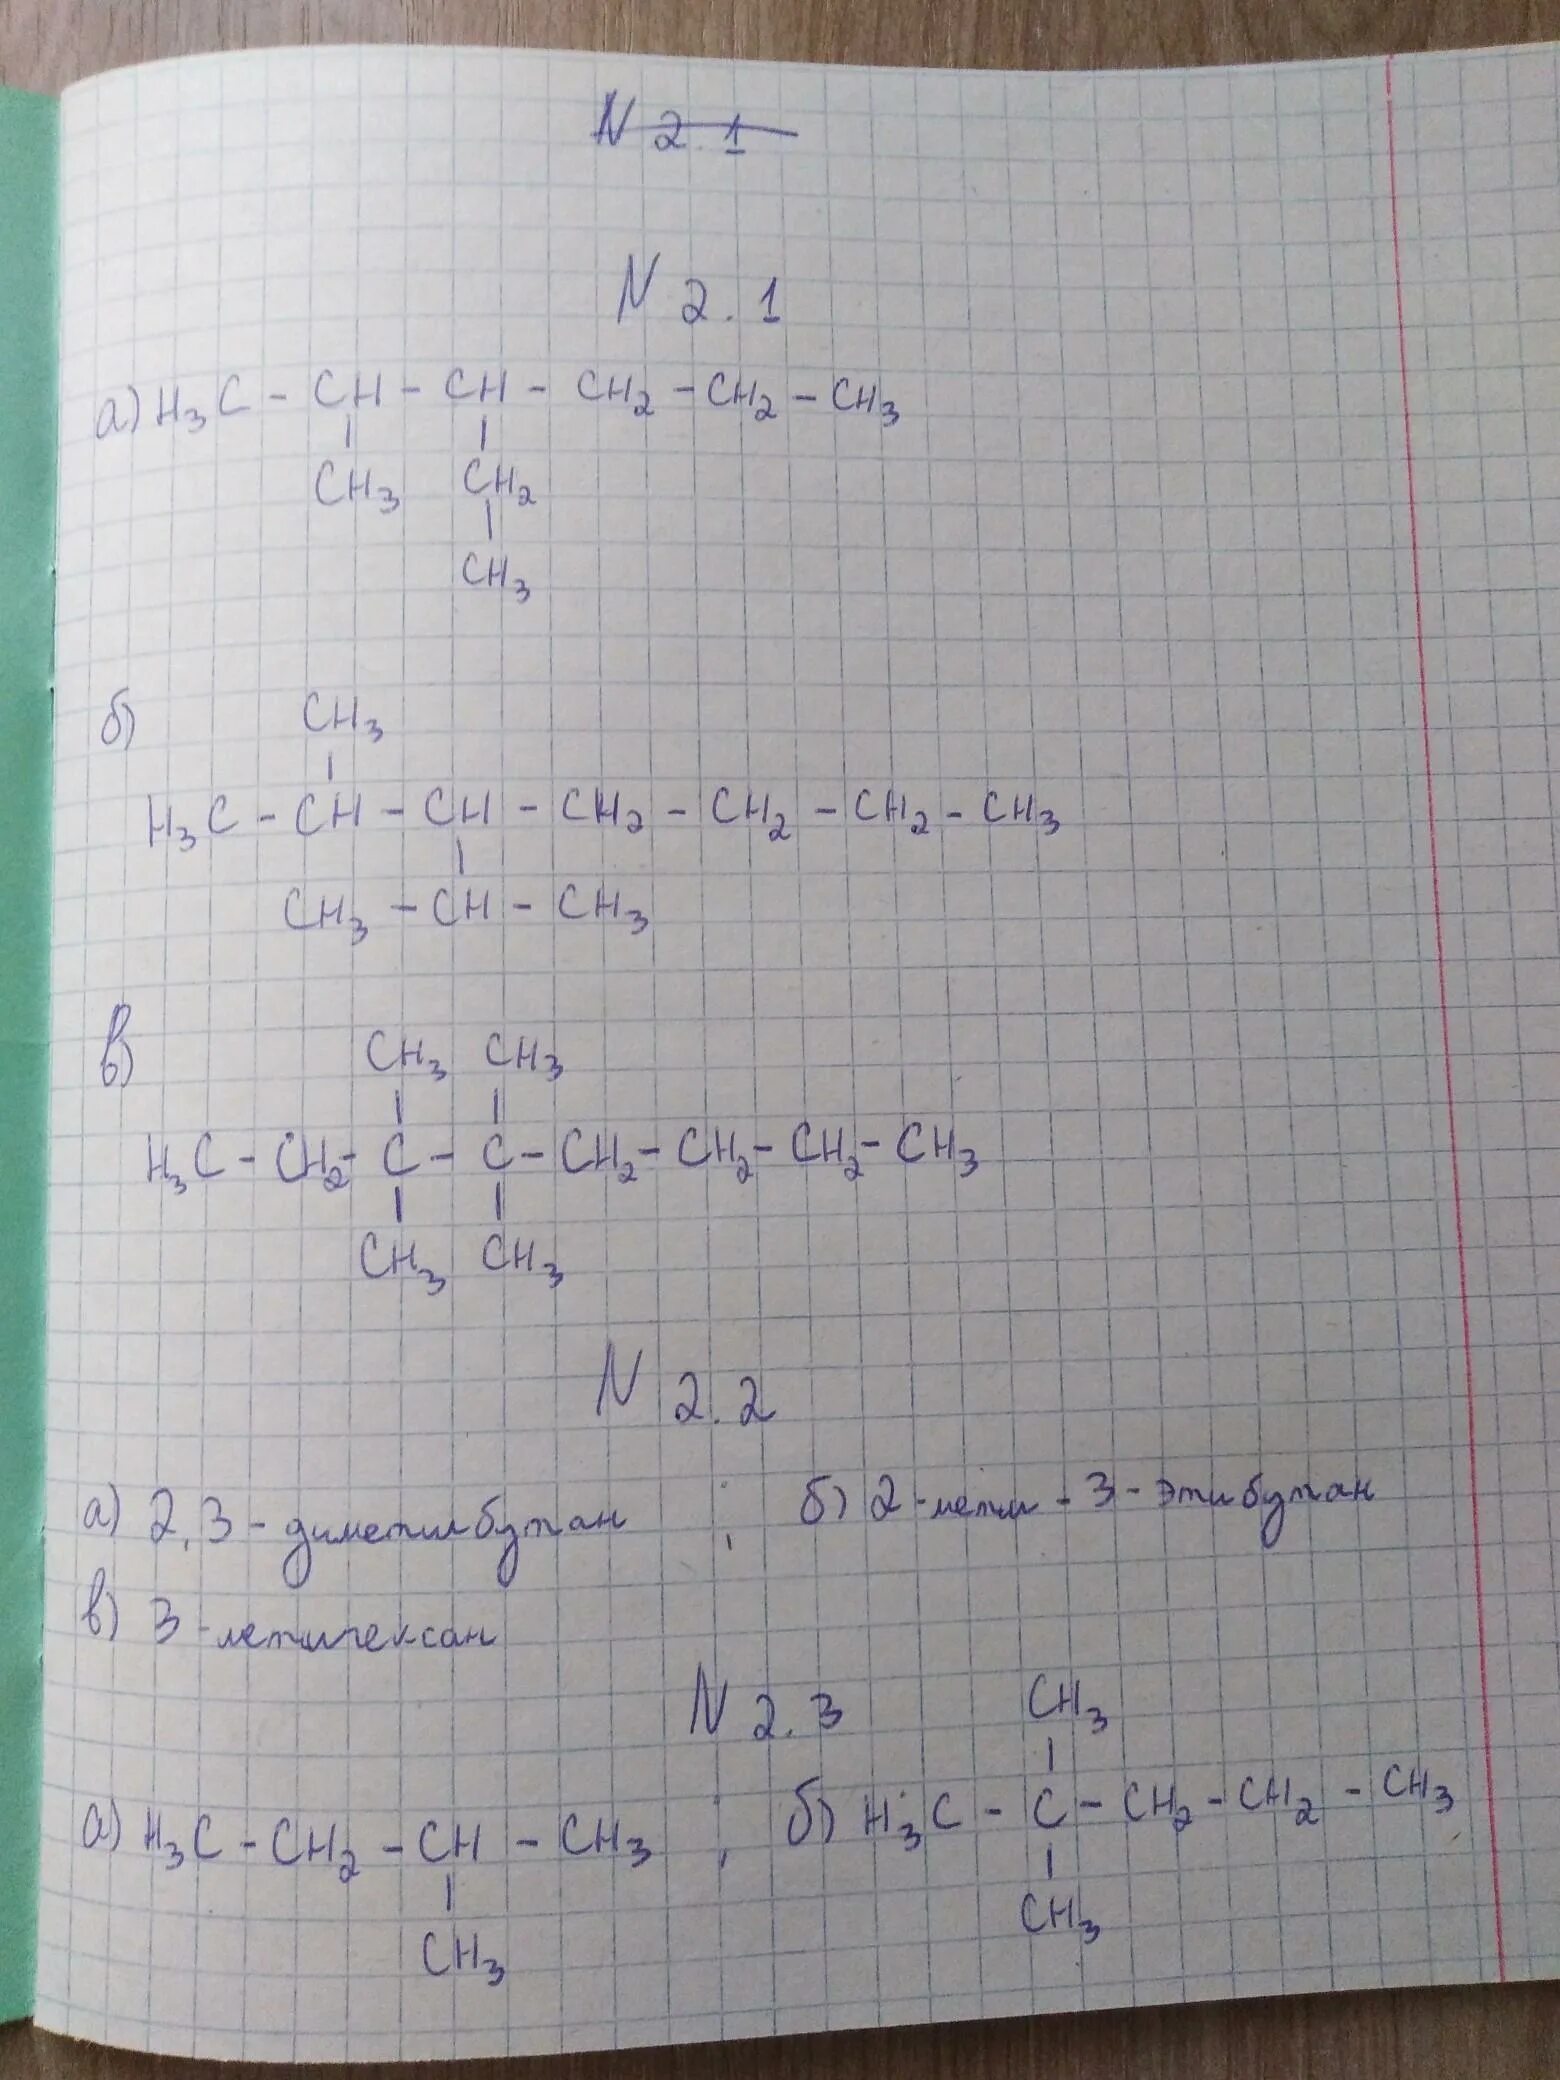 N 2.1
N 2.1
а) H3C - CH - CH - CH2 - CH2 - CH3
| |
CH3 CH2
|
CH3
б) CH3
|
H3C - CH - CH - CH2 - CH2 - CH2 - CH3
|
CH3 - CH - CH3
в) CH3 CH3
| |
H3C - CH2 - C - C - CH2 - CH2 - CH2 - CH3
| |
CH3 CH3
N 2.2
а) 2,3-диметилбутан ; б) 2-метил-3-этилбутан
в) 3-метилгексан
N 2.3
CH3
|
а) H3C - CH2 - CH - CH3 ; б) H3C - C - CH2 - CH2 - CH3
| |
CH3 CH3